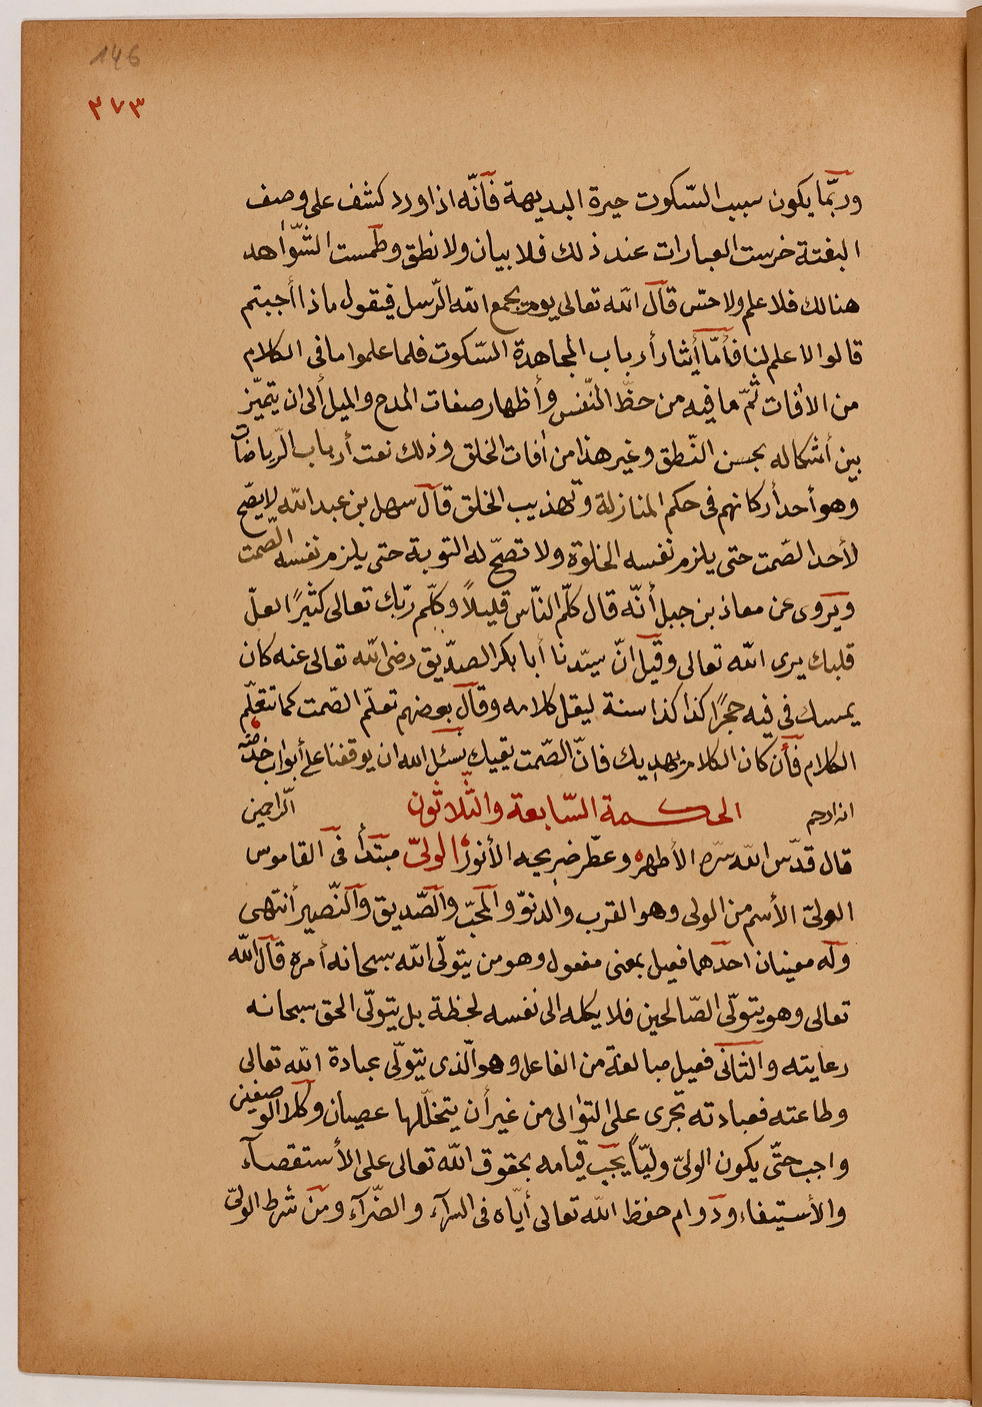 146
٢٧٣
وربّما يكون سبب السّكوت حيرة البديهة فأنّه اذا ورد كشف على وصف
البغتة خرست العبارات عند ذلك فلا بيان ولا نطق وطمست الشّواهد
هنالك فلا علم ولا حسّ قال الله تعالى يوم يجمع الله الرّسل فيقول ماذا أجبتم
قالوا لا علم لنا فأمّا أيثار أرباب المجاهدة السّكوت فلما علموا ما فى الكلام
من الافات ثمّ ما فيه من حظّ النّفس وأظهار صفات المدح والميل ألى ان يتميّز
بين أشكاله بحسن النّطق وغير هذا من افات الخلق وذلك نعت أرباب الرّياضات
وهو أحد أركانهم فى حكم المنازلة وتهذيب الخلق قال سهل بن عبد الله لا يصّح
لأحد الصّمت حتى يلزم نفسه الخلوة ولا تصحّ له التوبة حتى يلزم نفسه الصّمت
ويروى عن معاذ بن جبل أنّه قال كلّم النّاس قليلاً وكلّم ربّك تعالى كثيرًا لعلّ
قلبك يرى الله تعالى وقيل انّ سيّدنا أبا بكر الصدّيق رضى الله تعالى عنه كان
يمسك فى فيه حجرًا كذا كذا سنة ليقل كلامه وقال بعضهم تعلّم الصّمت كما تتعلّم
الكلام فأن كان الكلام يهديك فانّ الصّمت يقيك نسئل الله ان يوقفنا على أبواب خدمته
انه ارحم الحكمة السّابعة والثّلاثون الرّاحمين
قال قدّس الله سرّه الأطهر وعطّر ضريحه الأنور الولىّ مبتدأ فى القاموس
الولىّ الأسم من الولى وهو القرب والدنوّ والمحبّ والصّديق والنّصير أنتهى
وله معنيان احدهما فعيل بمعنى مفعول وهو من يتولّى الله سبحانه أمره قال الله
تعالى وهو يتولّى الصّالحين فلا يكله الى نفسه لحظة بل يتولّى الحق سبحانه
رعايته والثّانى فعيل مبالغة من الفاعل وهو الّذى يتولّى عبادة الله تعالى
وطاعته فعبادته تجرى على التوالى من غير أن يتخلّلها عصيان وكلا الوصفين
واجب حتّى يكون الولىّ وليّاً يجب قيامه بحقوق الله تعالى على الأستقصآء
والأستيفاء ودوام حفظ الله تعالى أيّاه فى السرآء والضّرآء ومن شرط الولىّ